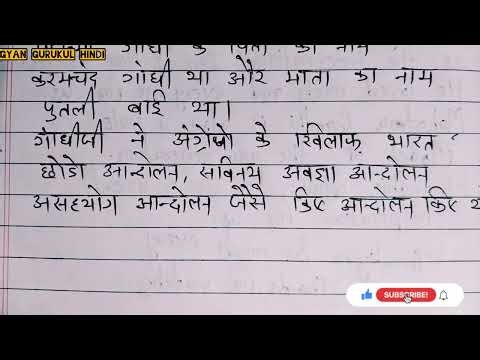 GYAN GURUKUL HINDI
गांधी के पिता का नाम
करमचंद गांधी था और माता का नाम
पुतली बाई था।
गांधीजी ने अंग्रेजो के खिलाफ भारत
छोडो आन्दोलन, सविनय अवज्ञा आन्दोलन
असहयोग आन्दोलन जैसे किए आन्दोलन किए
SUBSCRIBE!